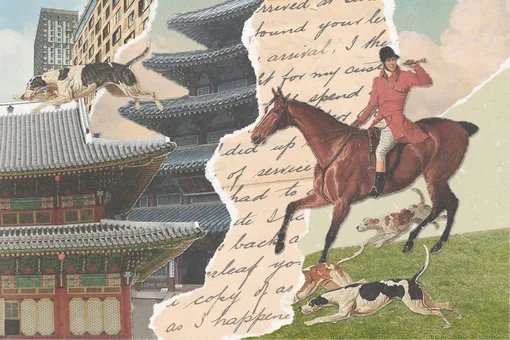 rrived at
ound your le
arrival, I the
for my cus
spend
did up
of service
had to
te I
back a
releaf yo
i copy of as
as I happene